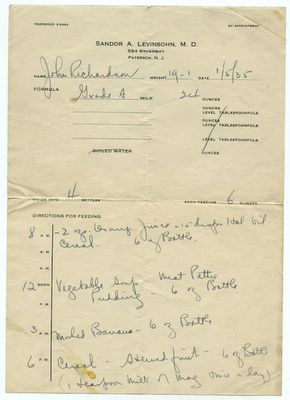 SANDOR A. LEVINSOHN, M. D.
584 BROADWAY
PATERSON, N. J.
BY APPOINTMENT
NAME John Richardson WEIGHT 19-1 DATE 1/5/35
FORMULA
Grade A MILK 24 OUNCES
OUNCES
LEVEL TABLESPOONFULS
LEVEL TABLESPOONFULS
BOILED WATER OUNCES
DIVIDE INTO 4 BOTTLES EACH FEEDING 6 OUNCES
DIRECTIONS FOR FEEDING
8 A.M. - 2 ozs. Orange Juice - 15 drops Hal. Oil.
Cereal. 6 oz Bottle
A.M.
12 NOON Vegetable Soup Meat Patty
Pudding 6 oz Bottle
3 P.M. Mashed Banana - 6 oz Bottle
6 P.M. Cereal - Stewed fruit - 6 oz Bottle
(1 teaspoon Milk of Mag. once a day)